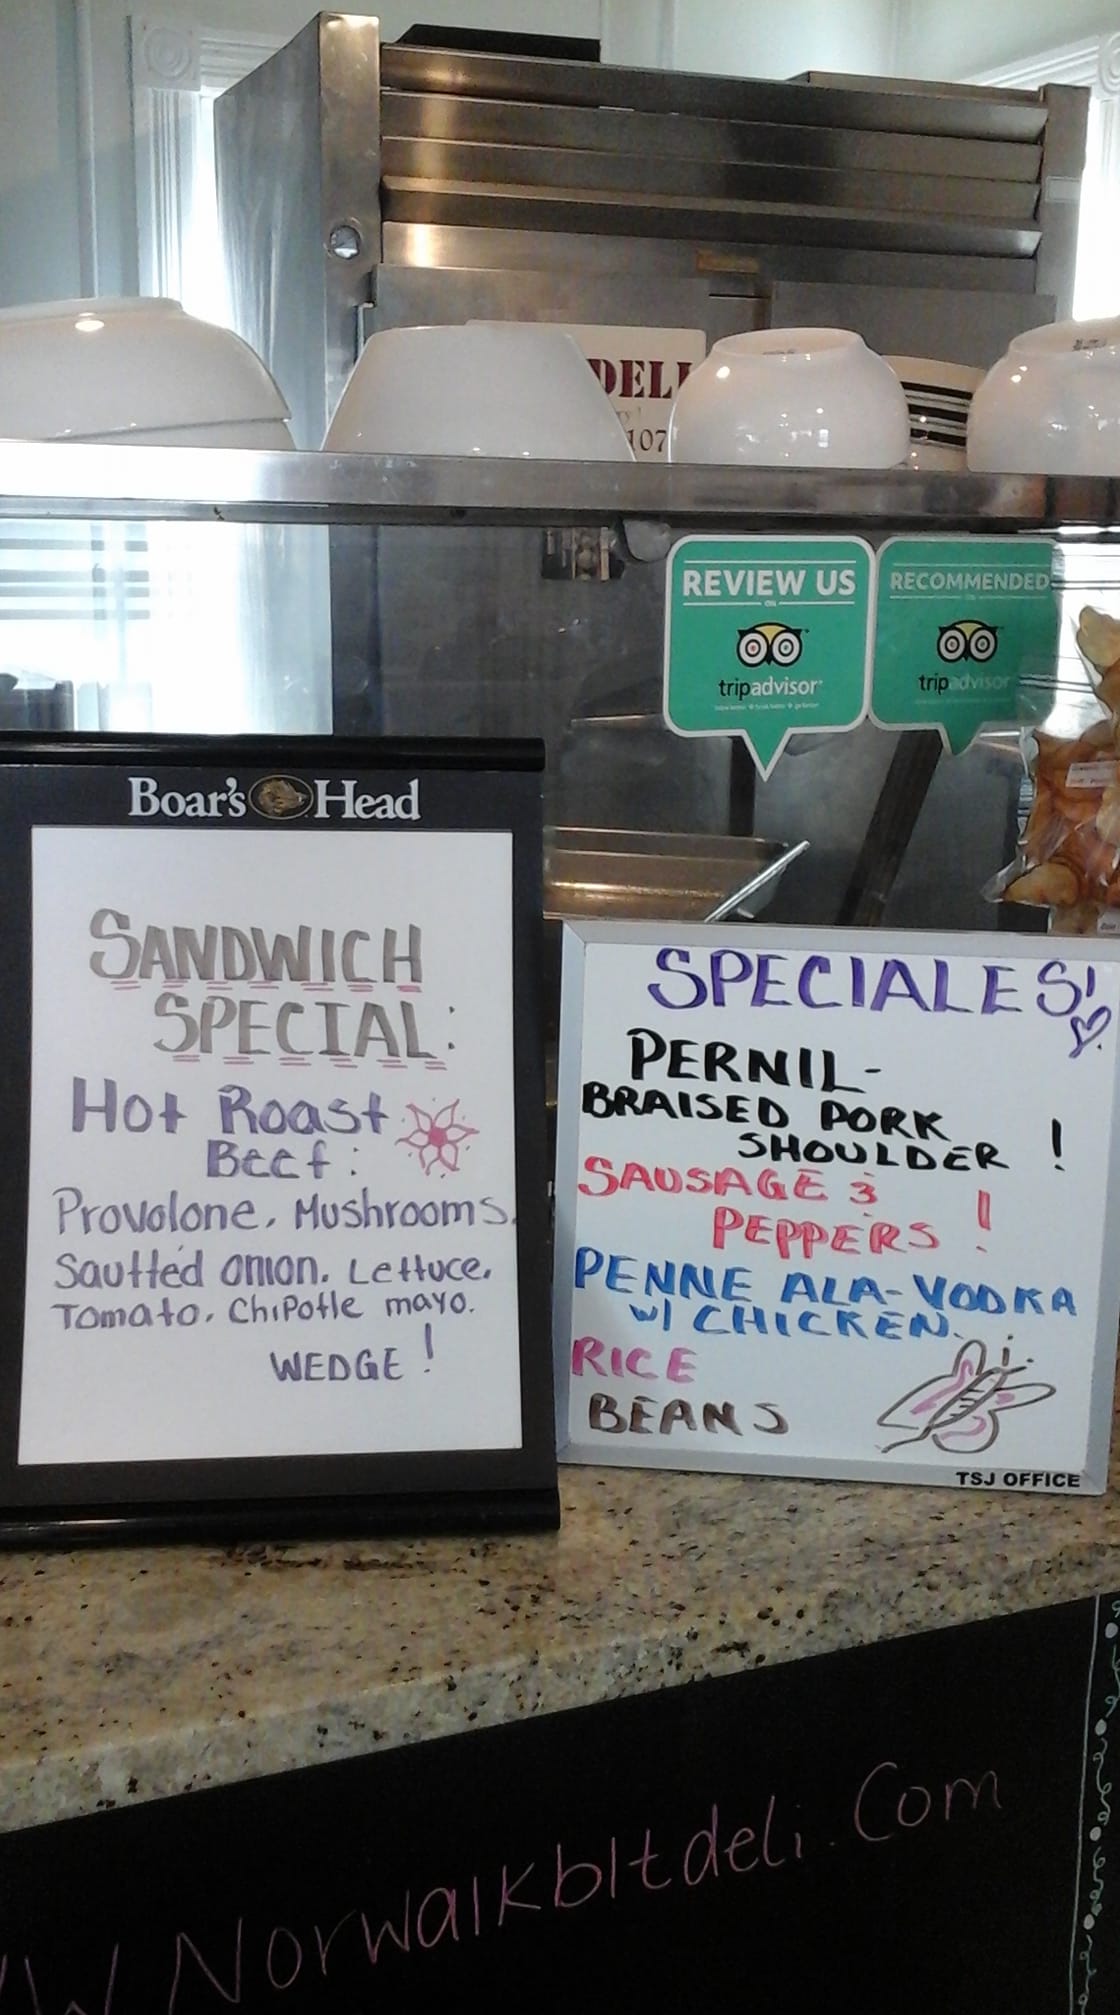 DELI
107
REVIEW US
ON
tripadvisor
RECOMMENDED
ON
tripadvisor
Boar's Head
SANDWICH
SPECIAL:
Hot Roast
Beef:
Provolone, Mushrooms,
Sautted onion, Lettuce,
Tomato, Chipotle mayo.
WEDGE!
SPECIALES!
PERNIL-
BRAISED PORK
SHOULDER!
SAUSAGE &
PEPPERS!
PENNE ALA-VODKA
W/ CHICKEN.
RICE
BEANS
TSJ OFFICE
W Norwalkbltdeli.Com